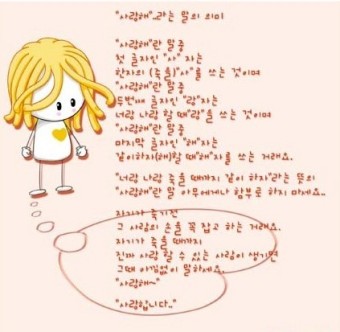 "사랑해"..라는 말의 의미
"사랑해"란 말중
첫 글자인 "사" 자는
한자의 (죽을)"사"를 쓰는 것이며
"사랑해"란 말중
두번째 글자인 "랑"자는
너랑 나랑 할 때"랑"을 쓰는 것이며
"사랑해"란 말중
마지막 글자인 "해"자는
같이하자(해)할 때"해"자를 쓰는 거래요.
"너랑 나랑 죽을때까지 같이 하자"라는 뜻의
"사랑해"란 말 아무에게나 함부로 하지 마세요..
자기가 죽기전
그 사람의 손을 꼭 잡고 하는 거래요.
자기가 죽을 때까지
진짜 사랑 할 수 있는 사람이 생기면
그때 아낌없이 말하세요.
"사랑해~"
"사랑합니다.."